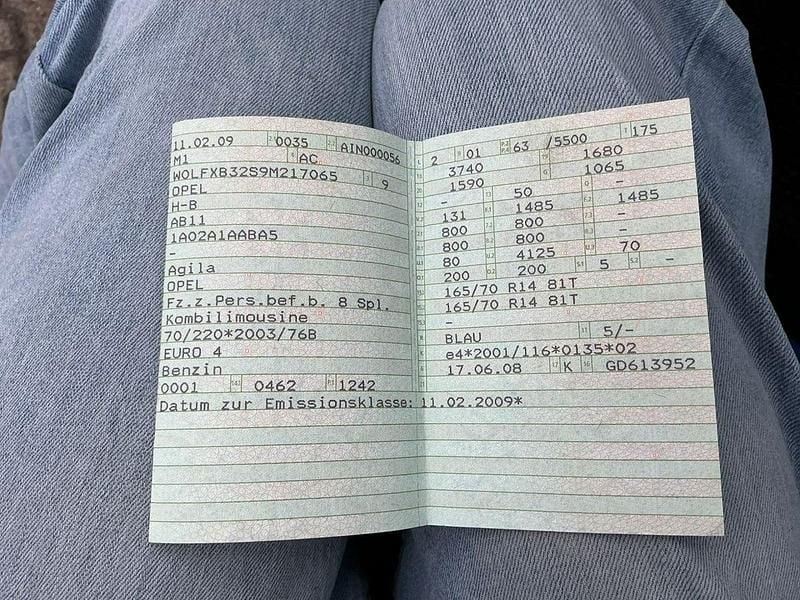 11.02.09 0035 AIN000056
M1 AC
WOLFXB32S9M217065 9
OPEL
H-B
AB11
1A02A1AABA5
-
Agila
OPEL
Fz.z.Pers.bef.b. 8 Spl.
Kombilimousine
70/220*2003/76B
EURO 4
Benzin
0001 0462 1242
Datum zur Emissionsklasse: 11.02.2009*
2 01 63 /5500 175
3740 1680
1590 1065
- 50 -
131 1485 1485
800 800 -
800 800 -
80 4125 70
200 200 5 -
165/70 R14 81T
165/70 R14 81T
-
BLAU 5/-
e4*2001/116*0135*02
17.06.08 K GD613952